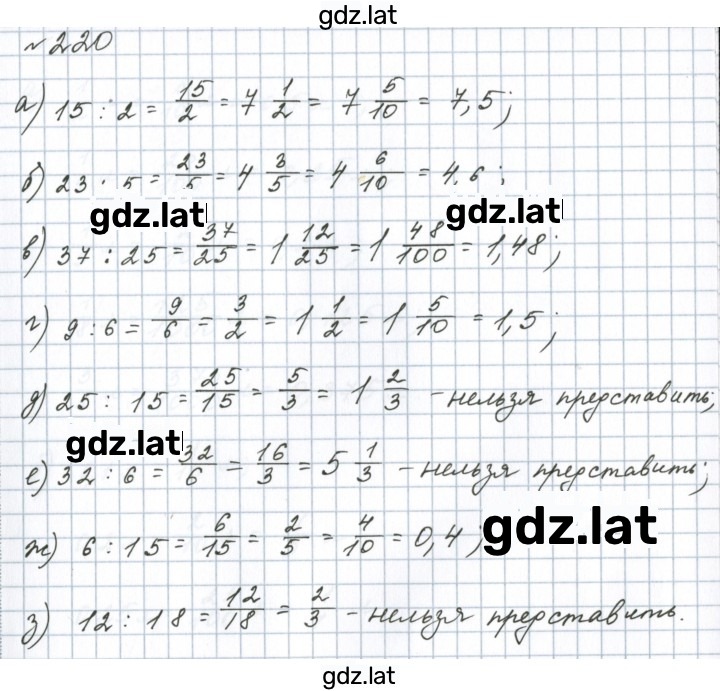 gdz.lat
№220
а) 15 : 2 = 15/2 = 7 1/2 = 7 5/10 = 7,5;
б) 23 : 5 = 23/5 = 4 3/5 = 4 6/10 = 4,6;
gdz.lat gdz.lat
в) 37 : 25 = 37/25 = 1 12/25 = 1 48/100 = 1,48;
г) 9 : 6 = 9/6 = 3/2 = 1 1/2 = 1 5/10 = 1,5;
д) 25 : 15 = 25/15 = 5/3 = 1 2/3 - нельзя представить;
gdz.lat
е) 32 : 6 = 32/6 = 16/3 = 5 1/3 - нельзя представить;
ж) 6 : 15 = 6/15 = 2/5 = 4/10 = 0,4; gdz.lat
з) 12 : 18 = 12/18 = 2/3 - нельзя представить.
gdz.lat